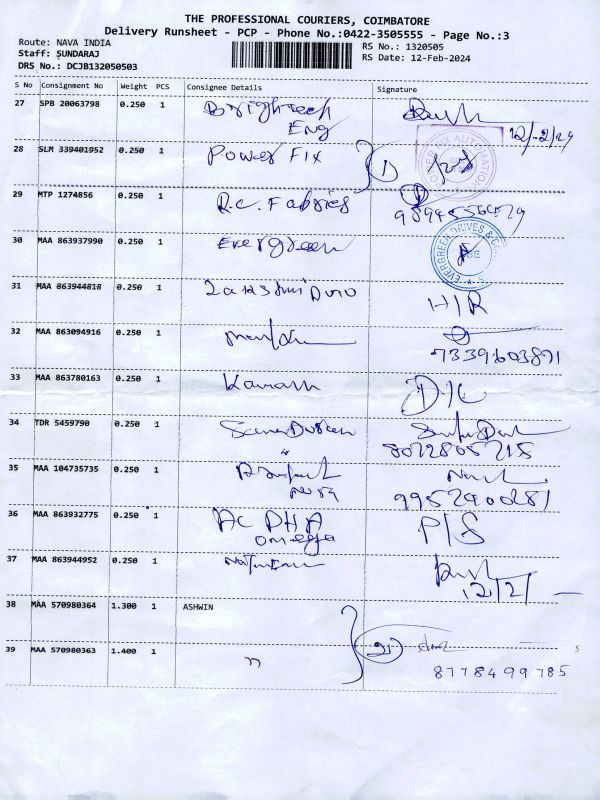 THE PROFESSIONAL COURIERS, COIMBATORE
Delivery Runsheet - PCP - Phone No.:0422-3505555 - Page No.:3
Route: NAVA INDIA
Staff: SUNDARAJ
DRS No.: DCJB132050503
RS No.: 1320505
RS Date: 12-Feb-2024
S No Consignment No Weight PCS Consignee Details Signature
27 SPB 20063798 0.250 1 Brightech
Eng
12/-2/24
28 SLM 339401952 0.250 1 Power Fix
29 MTP 1274856 0.250 1 R.C. Fabrics
30 MAA 863937990 0.250 1 Evergreen
EVERGREEN DRIVES &
31 MAA 863944818 0.250 1 H/R
32 MAA 863094916 0.250 1
7339603871
33 MAA 863780163 0.250 1
34 TDR 5459790 0.250 1
8072805215
35 MAA 104735735 0.250 1
9952900281
36 MAA 863932775 0.250 1 AC DHA P/S
omega
37 MAA 863944952 0.250 1
12/2/
38 MAA 570980364 1.300 1 ASHWIN
39 MAA 570980363 1.400 1 "
8778499785